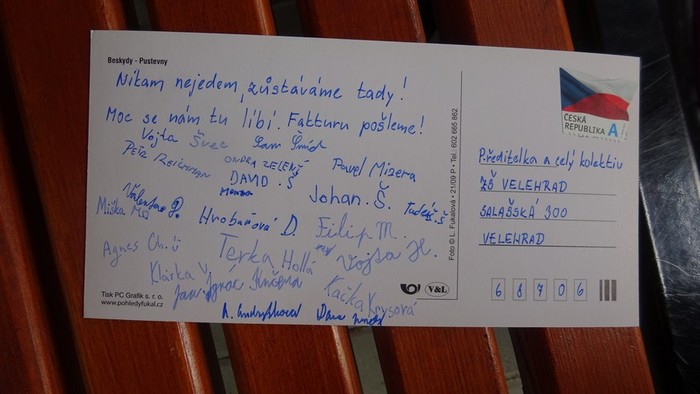 Beskydy - Pustevny
Nikam nejedem, zůstáváme tady!
Moc se nám tu líbí. Fakturu pošleme!
Vojta Švec
Petr Reichman
ONDRA ZELENÝ
Pavel Mizera
DAVID .Š
Johan. Š.
Tadeáš. Š
Valentina P.
Miška
Hrobařová D.
Filip M.
Agnes Ch.
Terka Hollá
Vojta H.
Klárka V.
Jan Ignác
Kačka Krysová
Tisk PC Grafik s. r. o.
www.pohledyfukal.cz
Foto © L. Fukalová • 21/09 P • Tel.: 602 665 862
V&L
ČESKÁ
REPUBLIKA A
Ředitelka a celý kolektiv
ZŠ VELEHRAD
SALAŠSKÁ 300
VELEHRAD
6 8 7 0 6